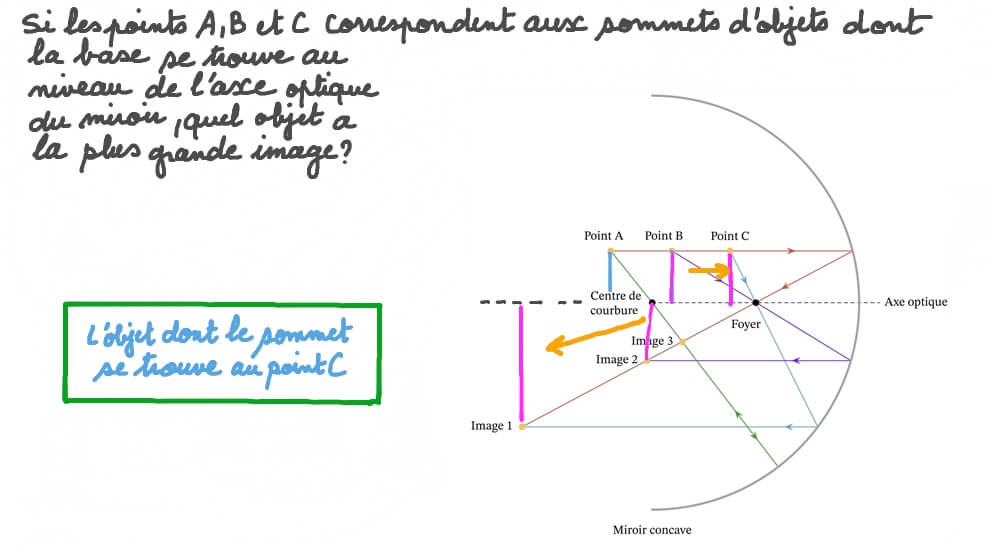 Si les points A, B et C correspondent aux sommets d'objets dont
la base se trouve au
niveau de l'axe optique
du miroir, quel objet a
la plus grande image?
Point A Point B Point C
Centre de
courbure
Axe optique
Foyer
Image 3
Image 2
L'objet dont le sommet
se trouve au point C
Image 1
Miroir concave